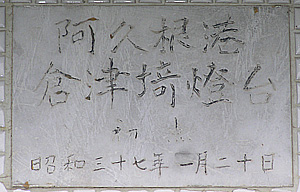 阿久根港
倉津埼燈台
初 点
昭和三十七年一月二十日